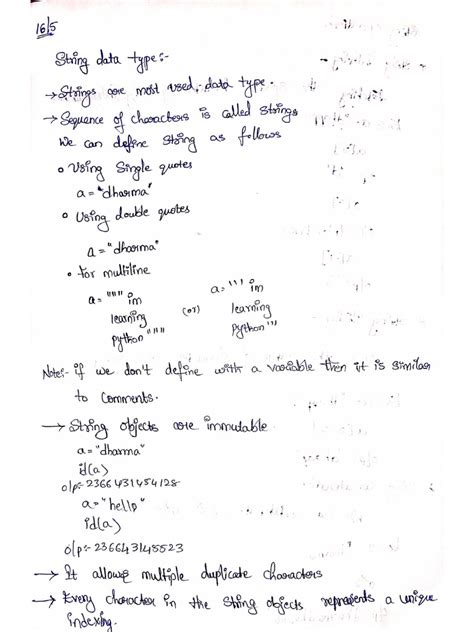 16/5
String data type:-
→ Strings are most used data type.
→ Sequence of characters is called strings
We can define string as follows
• Using Single quotes
a = "dharma"
• Using double quotes
a = "dharma"
• for multiline
a = """ im a = ''' im
learning (or) learning
python """ Python '''
Note:- if we don't define with a variable then it is similar
to comments.
→ String objects are immutable
a = "dharma"
id(a)
o/p:- 2366431454128
a = "hello"
id(a)
o/p:- 236643145523
→ It allows multiple duplicate characters
→ Every character in the string objects represents a unique
indexing.